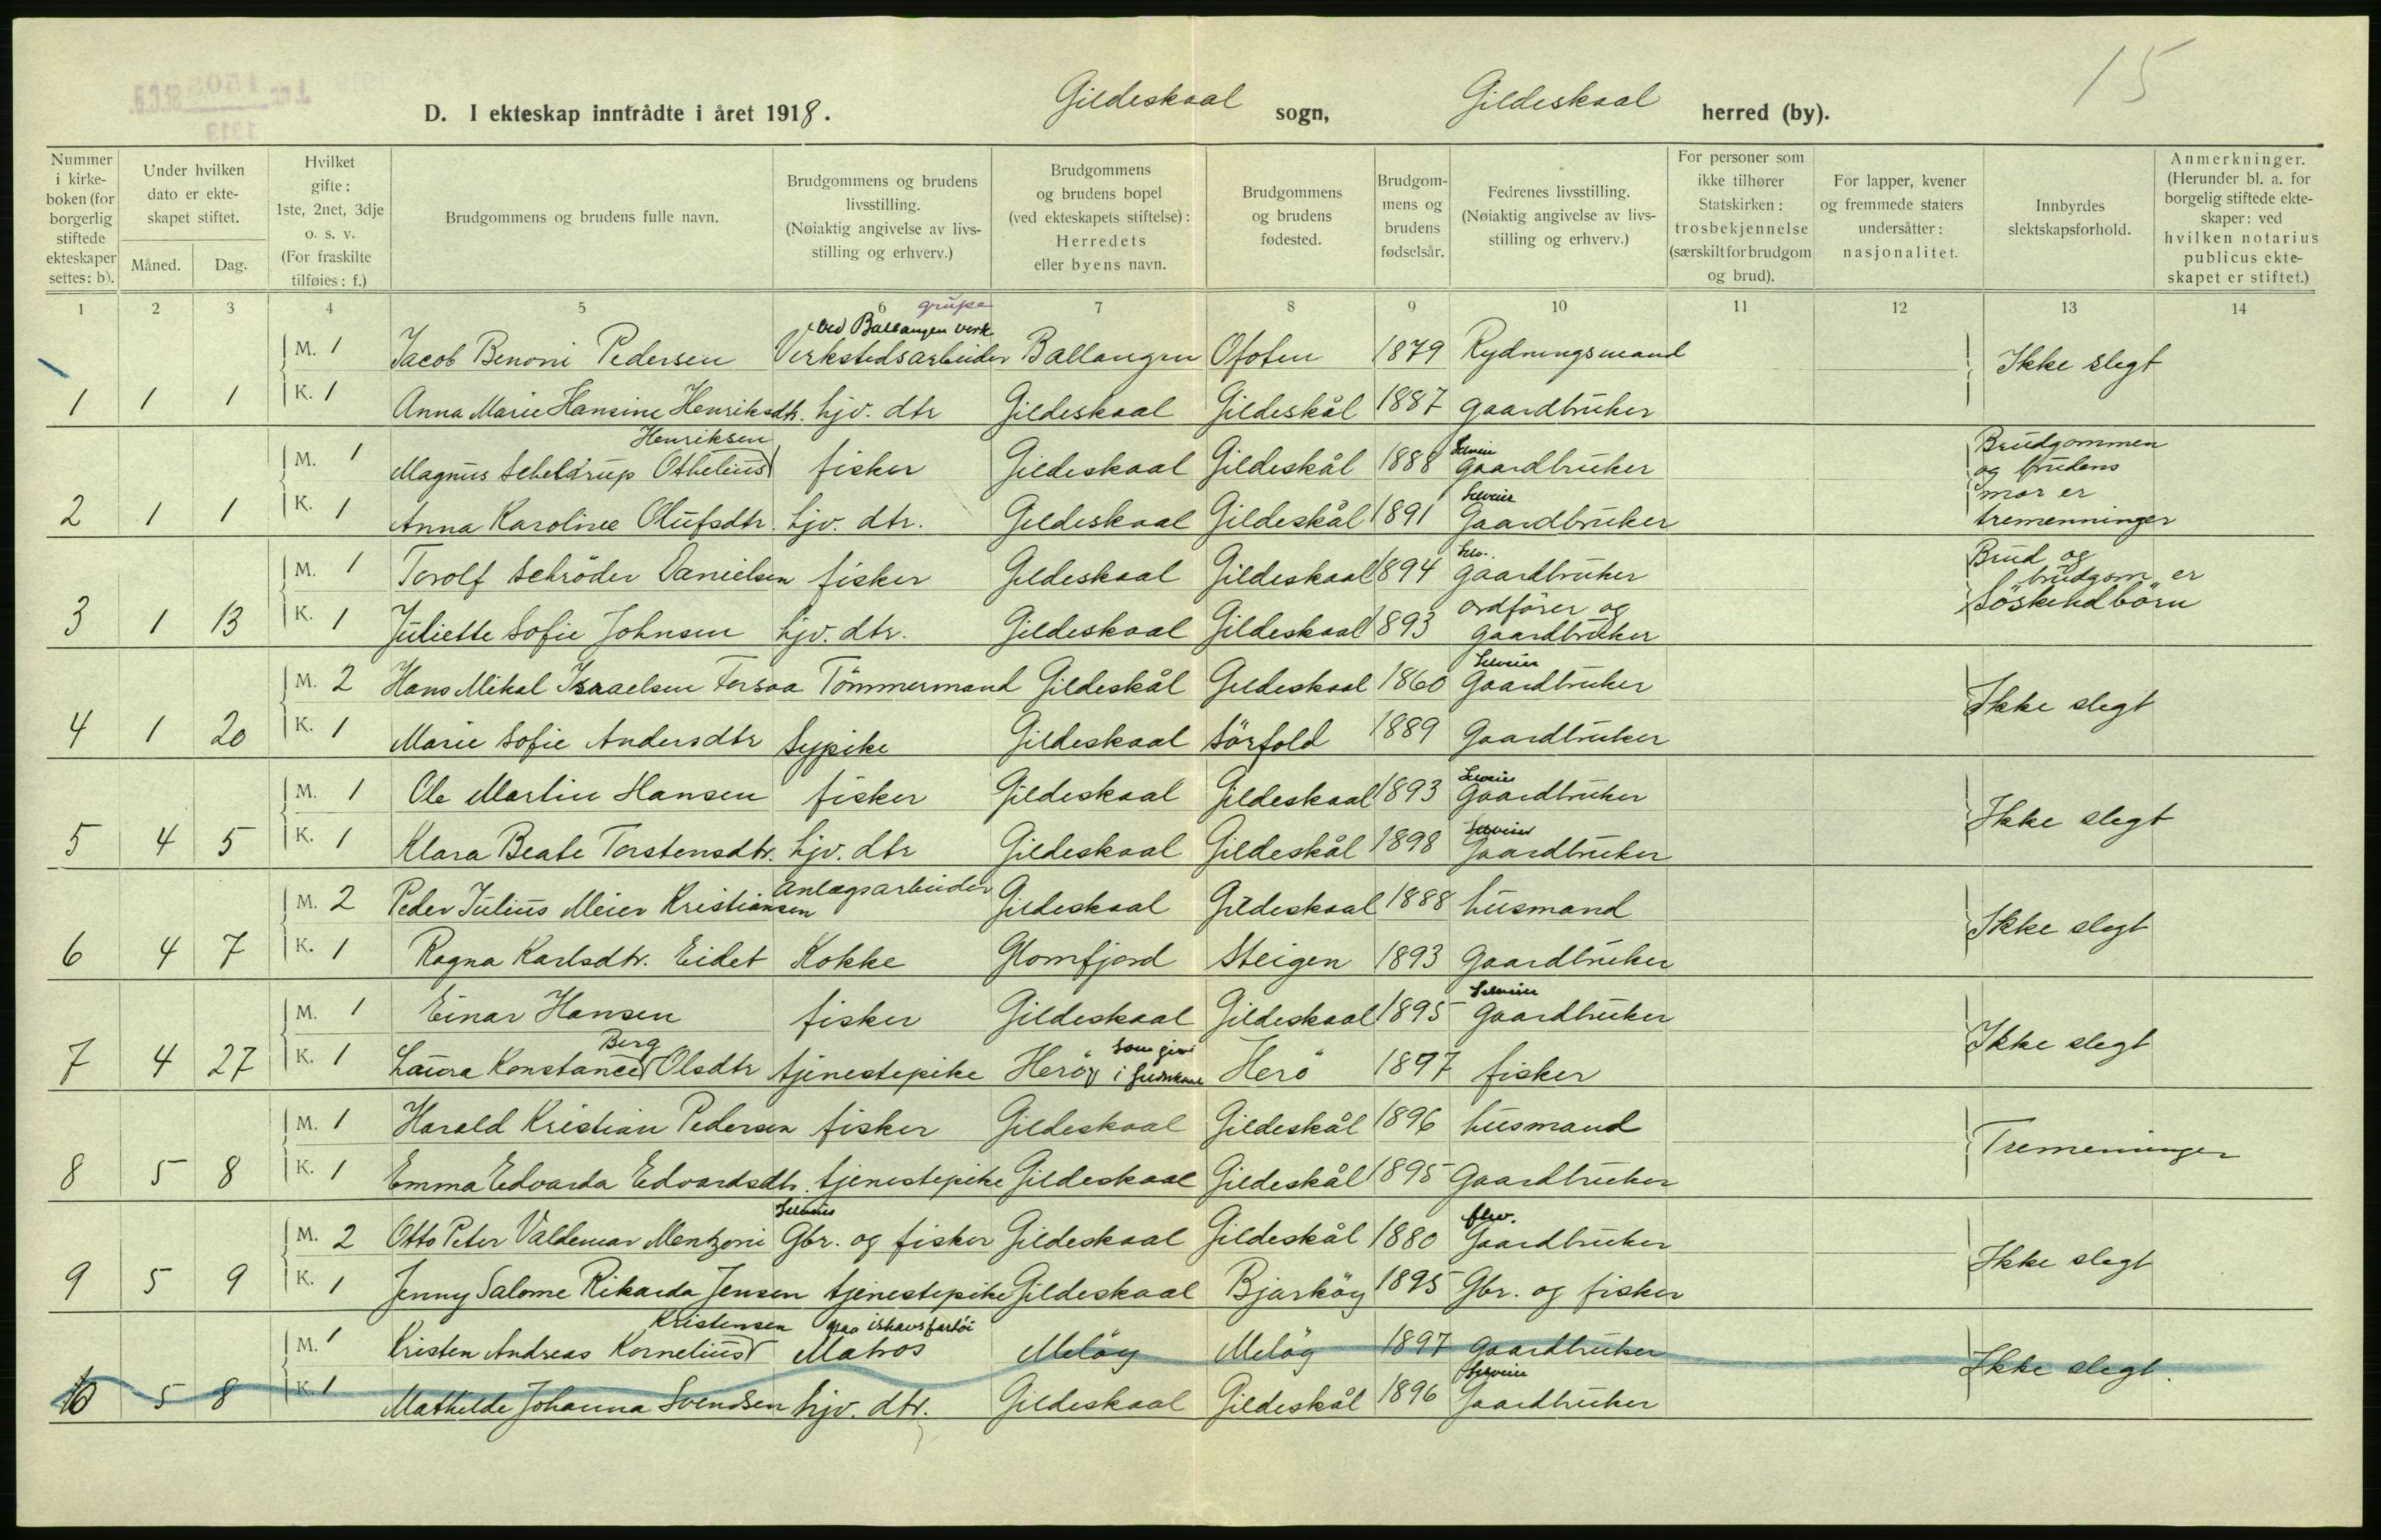 15
D. I ekteskap inntrådte i året 1918. Gildeskaal sogn, Gildeskaal herred (by).
Nummer i kirke-boken (for borgerlig stiftede ekteskaper settes: b).
Under hvilken dato er ekte-skapet stiftet.
Måned.
Dag.
Hvilket gifte: 1ste, 2net, 3dje o. s. v. (For fraskilte tilføies: f.)
Brudgommens og brudens fulle navn.
Brudgommens og brudens livsstilling. (Nøiaktig angivelse av livs-stilling og erhverv.)
Brudgommens og brudens bopel (ved ekteskapets stiftelse): Herredets eller byens navn.
Brudgommens og brudens fødested.
Brudgom-mens og brudens fødselsår.
Fedrenes livsstilling. (Nøiaktig angivelse av livs-stilling og erhverv.)
For personer som ikke tilhører Statskirken: trosbekjennelse (særskilt for brudgom og brud).
For lapper, kvener og fremmede staters undersåtter: nasjonalitet.
Innbyrdes slektskapsforhold.
Anmerkninger. (Herunder bl. a. for borgelig stiftede ekte-skaper: ved hvilken notarius publicus ekte-skapet er stiftet.)
1 2 3 4 5 6 7 8 9 10 11 12 13 14
grupe
ved Ballangen verk
M. 1 Jacob Benoni Pedersen Verkstedsarbeider Ballangen Ofoten 1879 Rydningsmand Ikke slegt
1 1 1 K. 1 Anna Marie Hansine Henriksdtr. hjv. dtr Gildeskaal Gildeskål 1887 gaardbruker
Henriksen Selveier
M. 1 Magnus Scheldrup Othelius fisker Gildeskaal Gildeskål 1888 gaardbruker Brudgommen og brudens
Selveier
2 1 1 K. 1 Anna Karoline Olufsdtr. hjv. dtr. Gildeskaal Gildeskål 1891 Gaardbruker mor er tremenninger
Selv.
M. 1 Torolf Schröder Danielsen fisker Gildeskaal Gildeskaal 1894 gaardbruker Brud og brudgom er
3 1 13 K. 1 Juliette Sofie Johnsen hjv. dtr. Gildeskaal Gildeskaal 1893 ordförer og gaardbruker Söskendbörn
Selveier
M. 2 Hans Mikal Israelsen Forsaa Tömmermand Gildeskål Gildeskaal 1860 Gaardbruker Ikke slegt
4 1 20 K. 1 Marie Sofie Andersdtr Sypike Gildeskaal Sörfold 1889 Gaardbruker
Selveier
M. 1 Ole Martin Hansen fisker Gildeskaal Gildeskaal 1893 Gaardbruker Ikke slegt
Selveier
5 4 5 K. 1 Klara Beate Torstensdtr. hjv. dtr Gildeskaal Gildeskål 1898 Gaardbruker
M. 2 Peder Julius Meier Kristiansen Anlægsarbeider Gildeskaal Gildeskaal 1888 husmand Ikke slegt
6 4 7 K. 1 Ragna Karlsdtr. Eidet Kokke Glomfjord Steigen 1893 Gaardbruker
Selveier
M. 1 Einar Hansen fisker Gildeskaal Gildeskaal 1895 Gaardbruker Ikke slegt
Berg
7 4 27 K. 1 Laura Konstance Olsdtr tjenestepike Heröy Herö 1897 fisker
M. 1 Harald Kristian Pedersen fisker Gildeskaal Gildeskål 1896 husmand Tremenninger
8 5 8 K. 1 Emma Edvarda Edvardsdtr. tjenestepike Gildeskaal Gildeskål 1895 Gaardbruker
Selveier
M. 2 Otto Peter Valdemar Mentzoni Gbr. og fisker Gildeskaal Gildeskål 1880 Gaardbruker Ikke slegt
9 5 9 K. 1 Jenny Salome Rikarda Jensen tjenestepike Gildeskaal Bjarköy 1895 Gbr. og fisker
Kristensen paa ishavsfartöi
M. 1 Kristen Andreas Kornelius Matros Melöy Melöy 1897 gaardbruker Ikke slegt.
Selveier
10 5 8 K. 1 Mathilde Johanna Svendsen hjv. dtr. Gildeskaal Gildeskål 1896 Gaardbruker